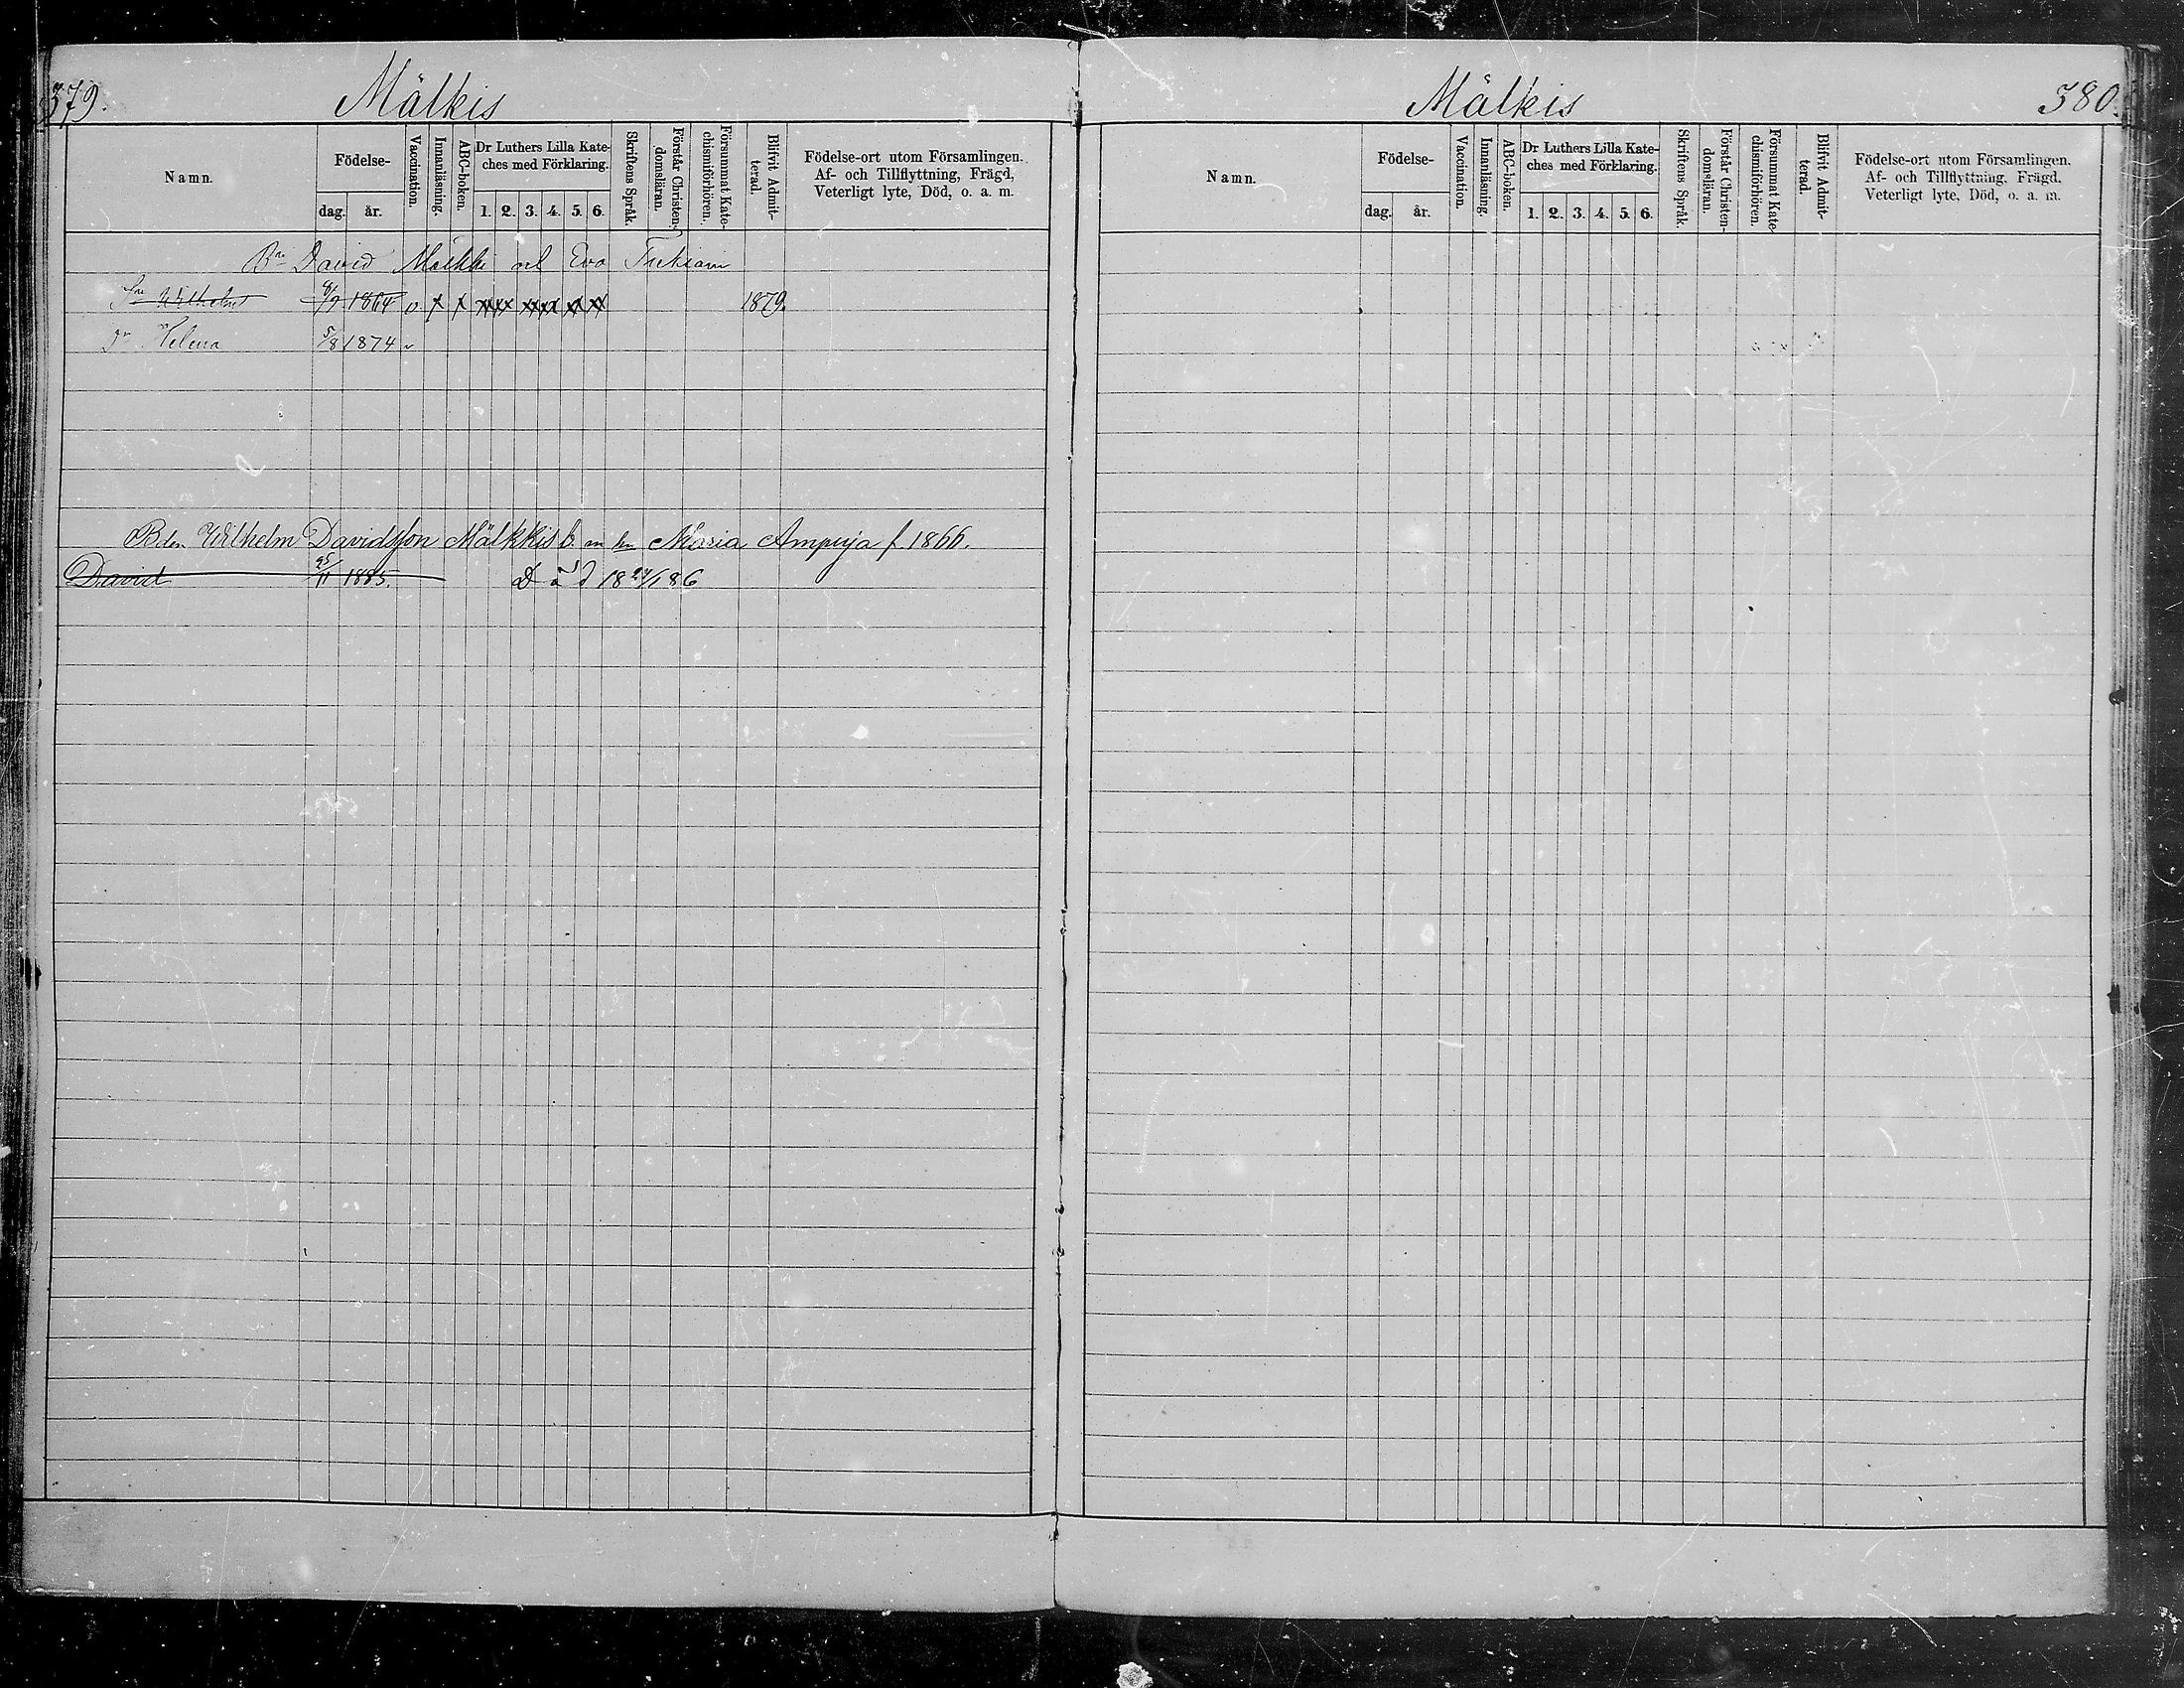 379.
Mälkis
Namn.
Födelse-
dag.
år.
Vaccination.
Innanläsning.
ABC-boken.
Dr Luthers Lilla Kate-
ches med Förklaring.
1. 2. 3. 4. 5. 6.
Skriftens Språk.
Förstår Christen-
domsläran.
Försummat Kate-
chismiförhören.
Blifvit Admit-
terad.
Födelse-ort utom Församlingen.
Af- och Tillflyttning, Frägd,
Veterligt lyte, Död, o. a. m.
Bn David Mälkki och Eva Tukiain
Sn Wilhelm 1864 v x x xx xx xx xx xx xx 1879.
Dr Helena 5/8 1874 v
Bden Wilhelm Davidsson Mälkkis b. m hu Maria Ampuja f. 1866.
David 25/11 1885. Död 18 24/1 86
Mälkis
380.
Namn.
Födelse-
dag.
år.
Vaccination.
Innanläsning.
ABC-boken.
Dr Luthers Lilla Kate-
ches med Förklaring.
1. 2. 3. 4. 5. 6.
Skriftens Språk.
Förstår Christen-
domsläran.
Försummat Kate-
chismiförhören.
Blifvit Admit-
terad.
Födelse-ort utom Församlingen.
Af- och Tillflyttning, Frägd,
Veterligt lyte, Död, o. a. m.